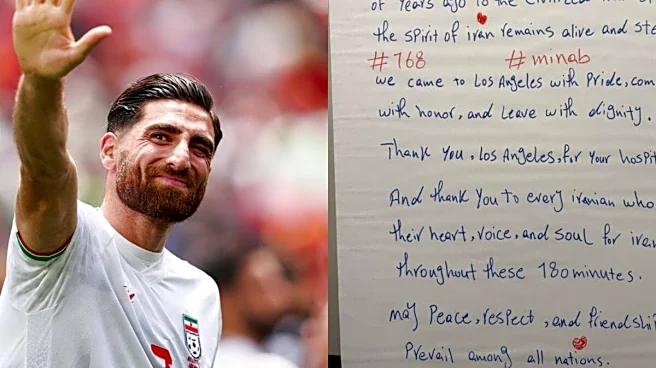 of Years ago to the civilized
the spirit of iran remains alive and
#168 #minab
we came to Los Angeles with Pride, com
with honor, and Leave with dignity.
Thank You, Los Angeles, for Your hospit
And thank You to every iranian who
their heart, voice, and soul for iran
throughout these 180 minutes.
may Peace, respect, and friendship
Prevail among all nations.
7